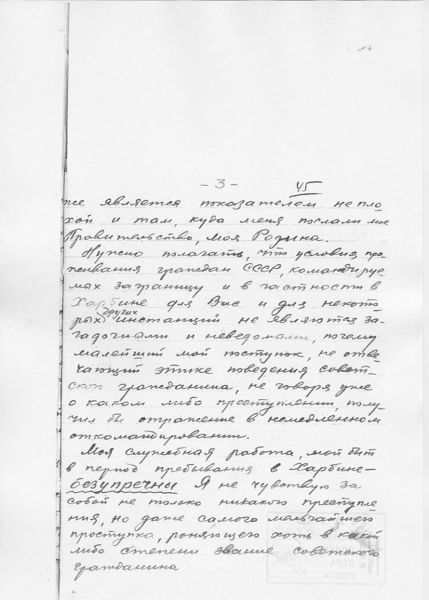 - 3 -
45
же является показателем непло
хой и там, куда меня послали мое
Правительство, моя Родина.
Нужно полагать, что условия про
живания граждан СССР, командируе
мых заграницу и в частности в
Харбине для Вас и для некото
рых других инстанций не являются за
гадочными и неведомыми, почему
малейший мой поступок, не отве
чающий этике поведения совет-
ского гражданина, не говоря уже
о каком либо преступлении, полу
чил бы отражение в немедленном
откомандировании.
Моя служебная работа, мой быт
в период пребывания в Харбине-
безупречны Я не чувствую за
собой не только никакого преступле
ния, но даже самого мельчайшего
проступка, роняющего хоть в какой
либо степени звание советского
гражданина